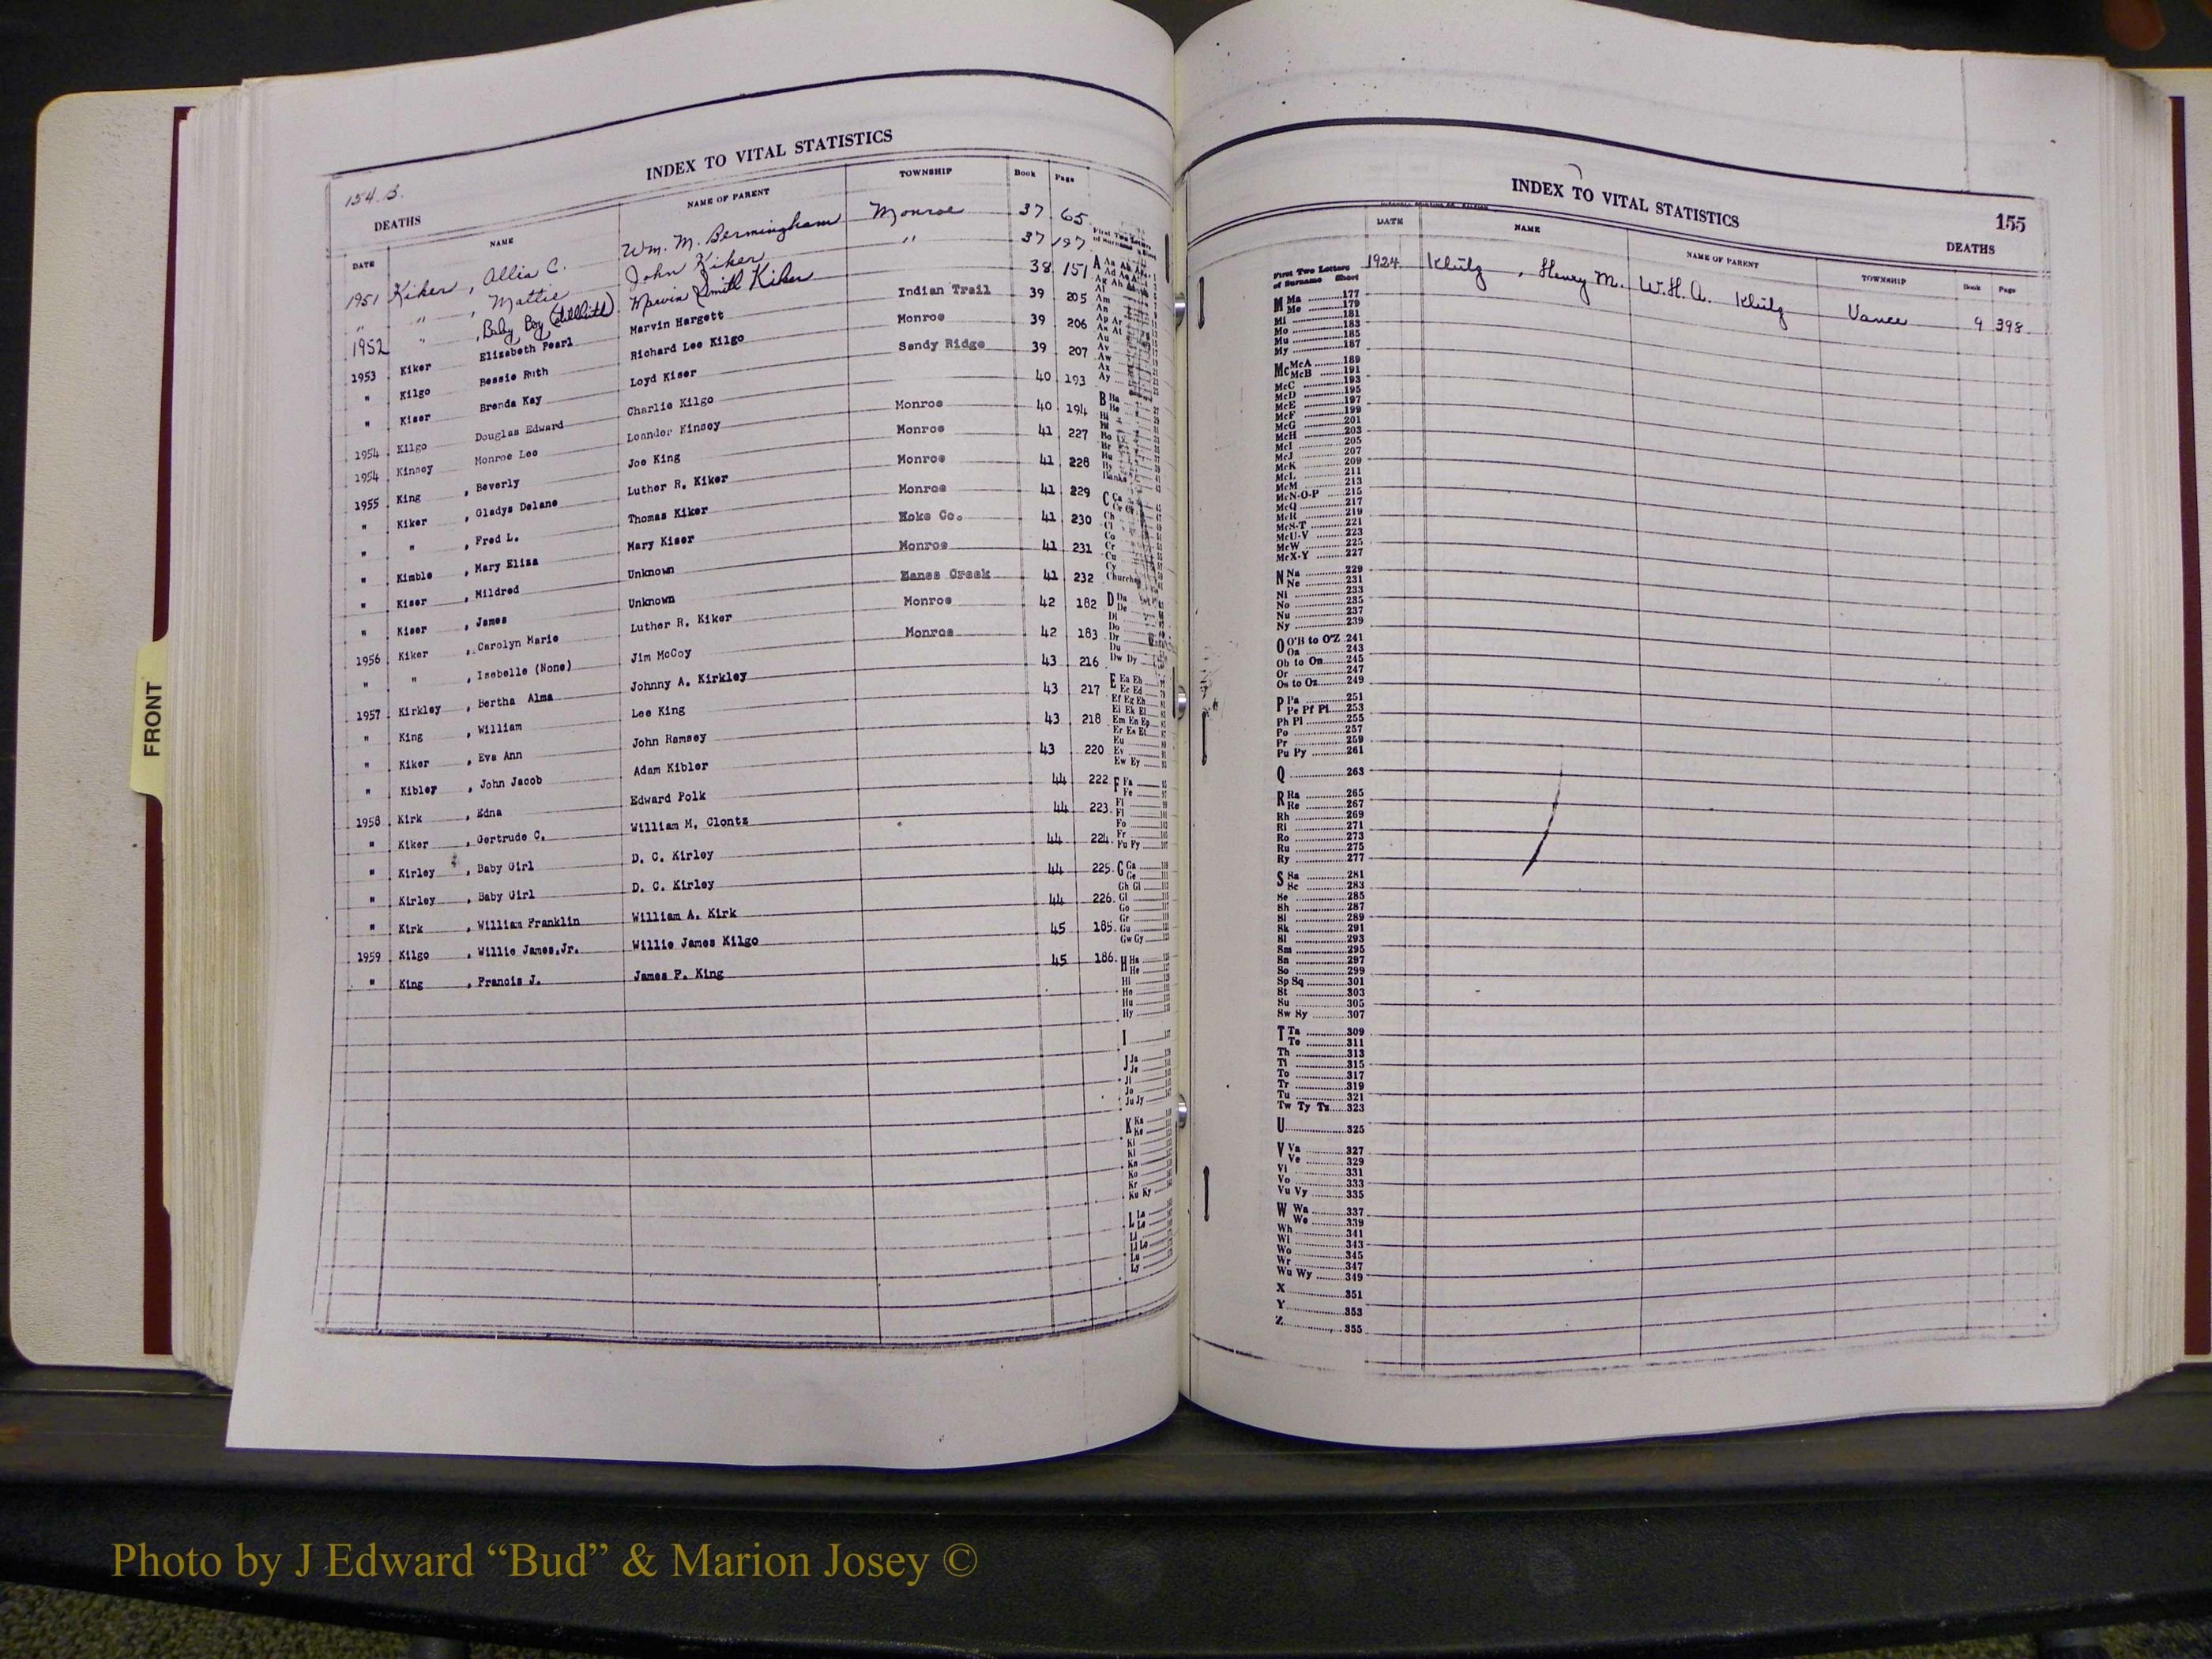 154 B.
INDEX TO VITAL STATISTICS
DEATHS
DATE NAME NAME OF PARENT TOWNSHIP Book Page
1951 Kiker , Allie C. Wm. M. Bermingham Monroe 37 65
" " , Mattie John Kiker " 37 197
1952 " , Baby Boy (stillbirth) Marvin Smith Kiker 38 151
1953 Kiker Elizabeth Pearl Marvin Hargett Indian Trail 39 205
" Kilgo Bessie Ruth Richard Lee Kilgo Monroe 39 206
" Kiser Brenda Kay Loyd Kiser Sandy Ridge 39 207
1954 Kilgo Douglas Edward Charlie Kilgo 40 193
1954 Kinsey Monroe Lee Leander Kinsey Monroe 40 194
1955 King , Beverly Joe King Monroe 41 227
" Kiker , Gladys Delane Luther R. Kiker Monroe 41 228
" " , Fred L. Thomas Kiker Monroe 41 229
" Kimble , Mary Eliza Mary Kiser Hoke Co. 41 230
" Kiser , Mildred Unknown Monroe 41 231
" Kiser , James Unknown Lanes Creek 41 232
1956 Kiker , Carolyn Marie Luther R. Kiker Monroe 42 182
" " , Isabelle (None) Jim McCoy Monroe 42 183
1957 Kirkley , Bertha Alma Johnny A. Kirkley 43 216
" King , William Lee King 43 217
" Kiker , Eva Ann John Ramsey 43 218
" Kibley , John Jacob Adam Kibler 43 220
1958 Kirk , Edna Edward Polk 44 222
" Kiker , Gertrude C. William M. Clontz 44 223
" Kirley , Baby Girl D. C. Kirley 44 224
" Kirley , Baby Girl D. C. Kirley 44 225
" Kirk , William Franklin William A. Kirk 44 226
1959 Kilgo , Willie James,Jr. Willie James Kilgo 45 185
" King , Francis J. James P. King 45 186
FRONT
INDEX TO VITAL STATISTICS
155
DEATHS
DATE NAME NAME OF PARENT TOWNSHIP Book Page
1924 Klutz , Henry M. W.H.A. Klutz Vance 9 398
First Two Letters
of Surname Sheet
M Ma 177
Me 179
Mi 181
Mo 183
Mu 185
My 187
Mc McA 189
McB 191
McC 193
McD 195
McE 197
McF 199
McG 201
McH 203
McI 205
McJ 207
McK 209
McL 211
McM 213
McN-O-P 215
McQ 217
McR 219
McS-T 221
McU-V 223
McW 225
McX-Y 227
N Na 229
Ne 231
Ni 233
No 235
Nu 237
Ny 239
O O'B to O'Z 241
Oa 243
Ob to On 245
Or 247
Os to Oz 249
P Pa 251
Pe Pf Pi 253
Ph Pl 255
Po 257
Pr 259
Pu Py 261
Q 263
R Ra 265
Re 267
Rh 269
Ri 271
Ro 273
Ru 275
Ry 277
S Sa 281
Sc 283
Se 285
Sh 287
Si 289
Sk 291
Sl 293
Sm 295
Sn 297
So 299
Sp Sq 301
St 303
Su 305
Sw Sy 307
T Ta 309
Te 311
Th 313
Ti 315
To 317
Tr 319
Tu 321
Tw Ty Tz 323
U 325
V Va 327
Ve 329
Vi 331
Vo 333
Vu Vy 335
W Wa 337
We 339
Wh 341
Wi 343
Wo 345
Wr 347
Wu Wy 349
X 351
Y 353
Z 355
Photo by J Edward “Bud” & Marion Josey ©